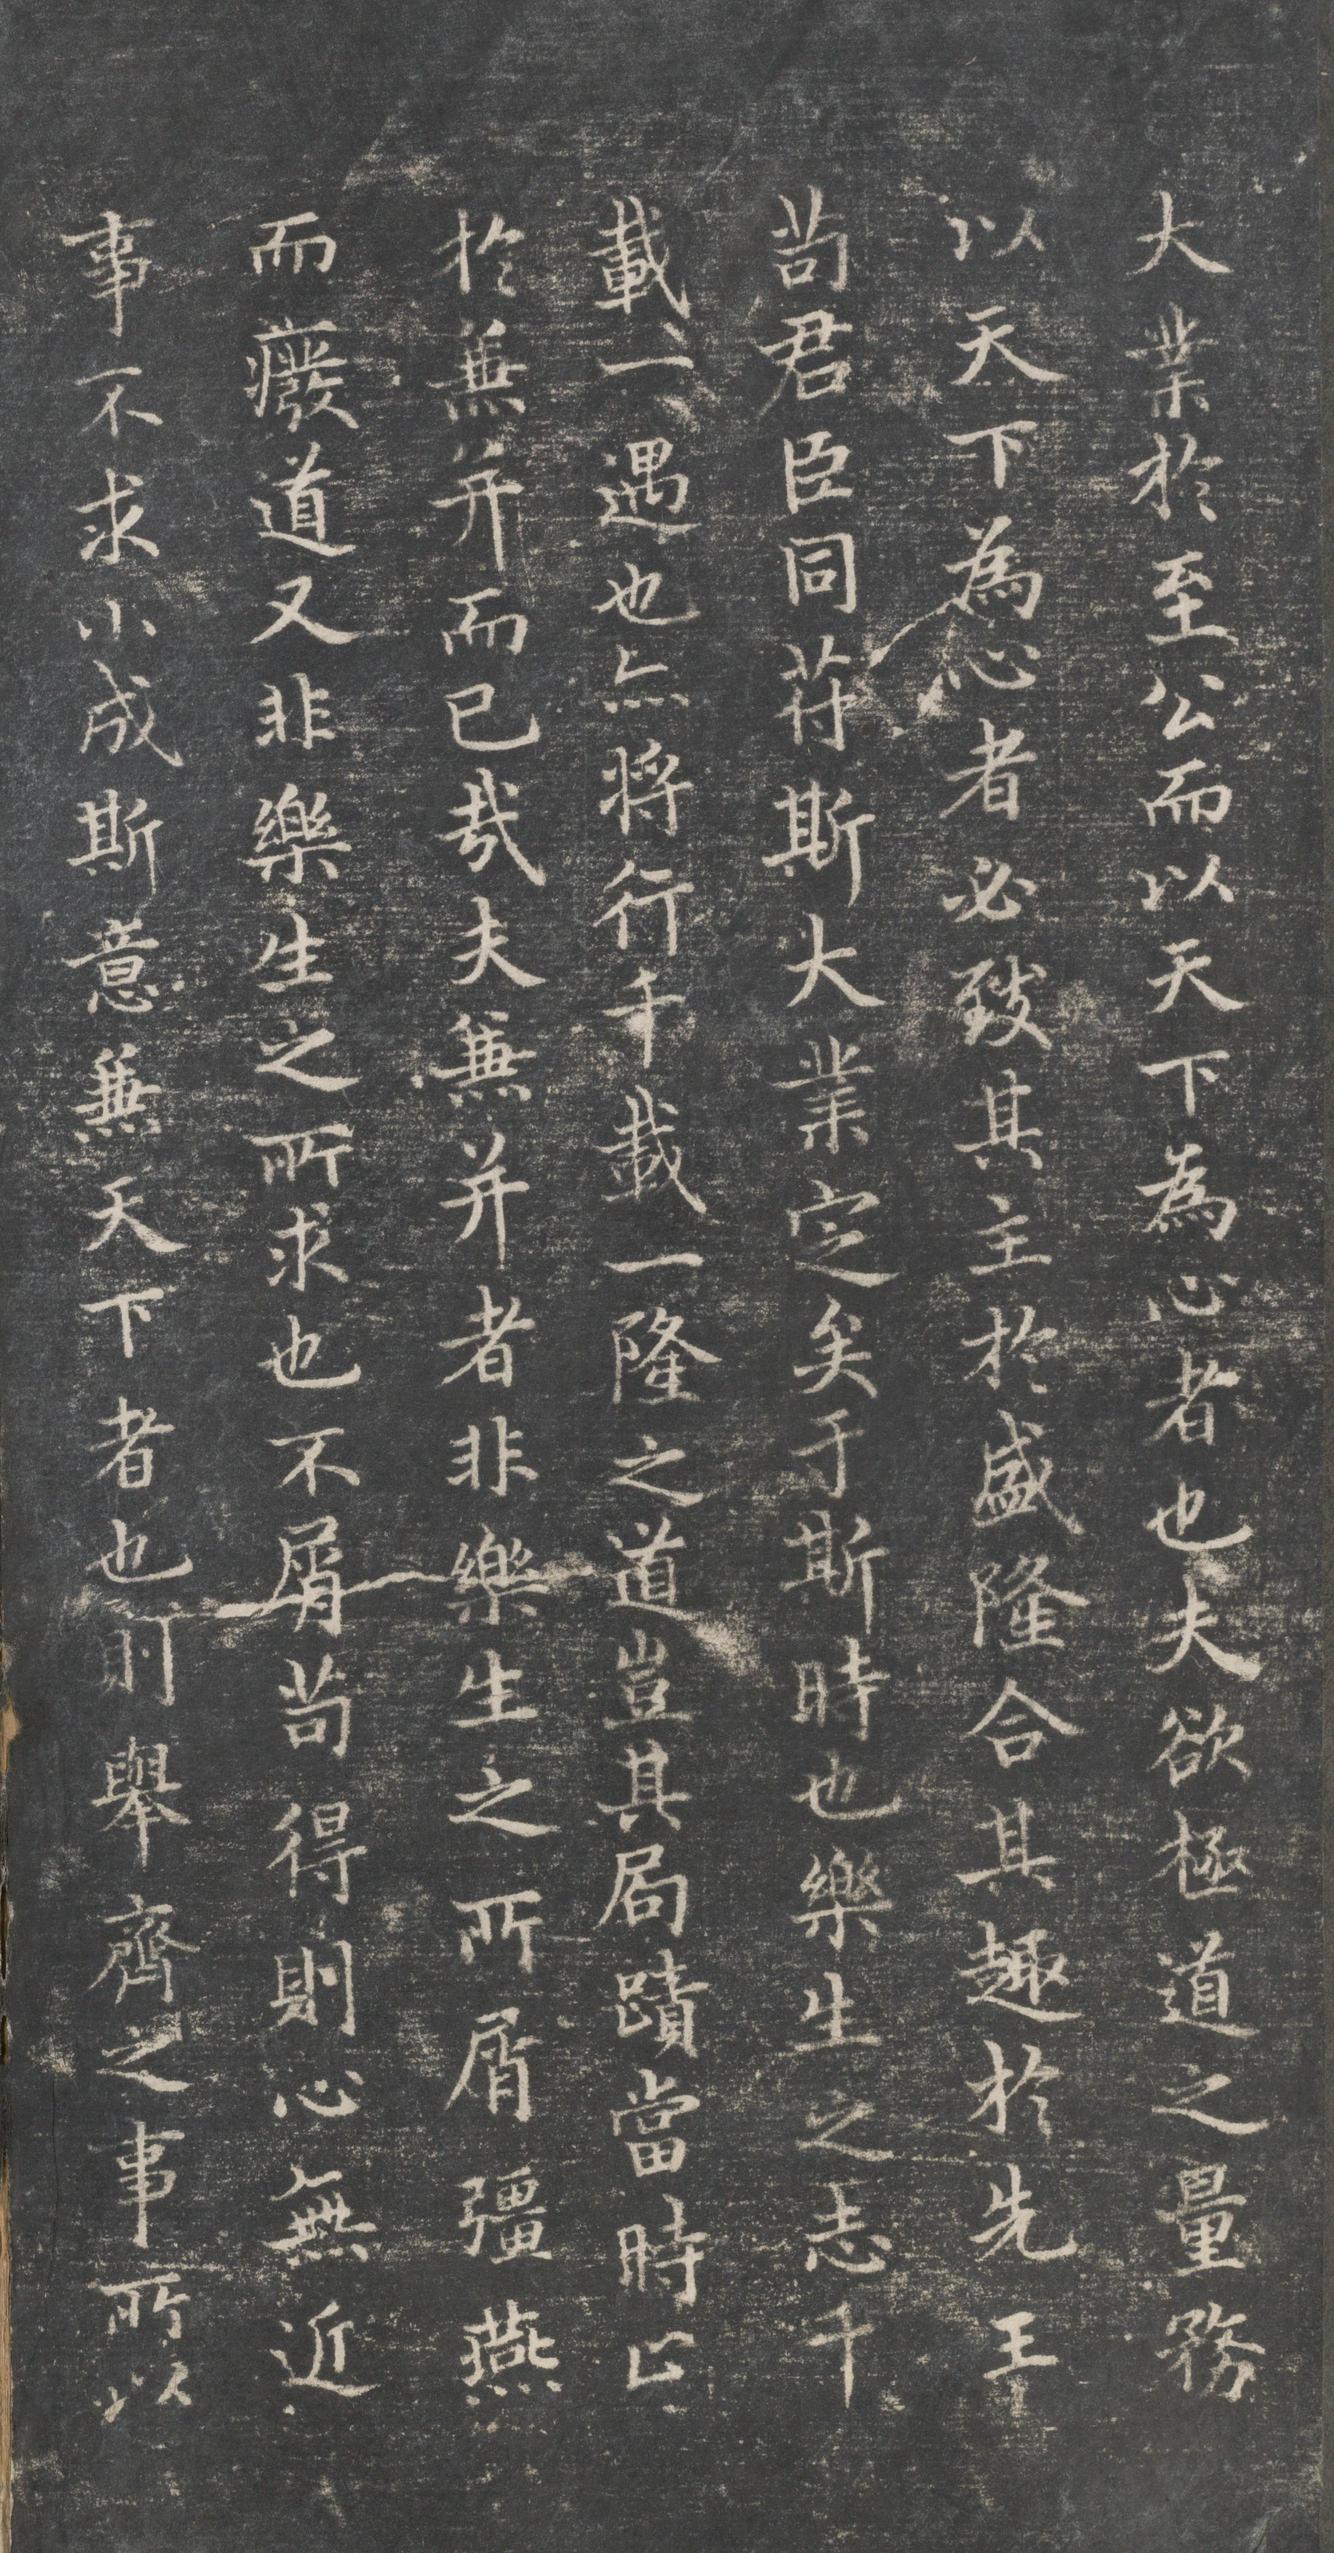 大業於至公而以天下為心者也夫欲極道之量務
以天下為心者必致其主於盛隆合其趣於先王
苟君臣同苻斯大業定矣于斯時也樂生之志千
載一遇也亦將行千載一隆之道豈其局蹟當時止
於兼并而已哉夫兼并者非樂生之所屑彊燕
而癈道又非樂生之所求也不屑苟得則心無近
事不求小成斯意兼天下者也則舉齊之事所以